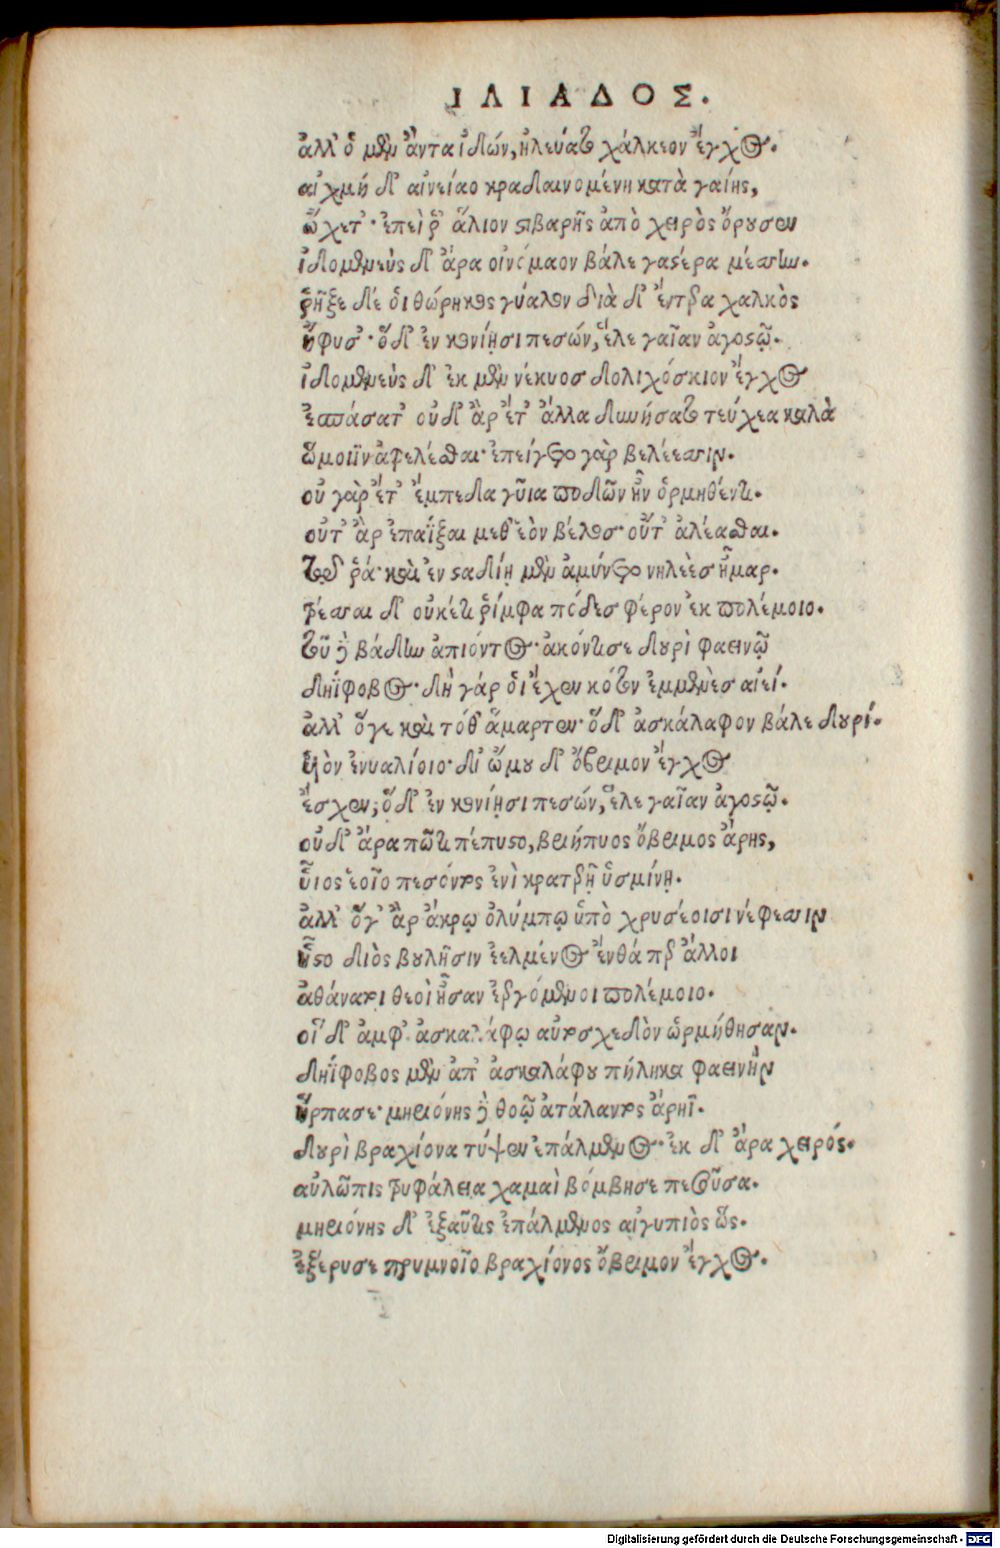 ΙΛΙΑΔΟΣ.
ἀλλ' ὁ μὲν ἄντα ἰδών, ἠλεύατο χάλκεον ἔγχος.
αἰχμή δ' αἰνείαο κραδαινομένη κατὰ γαίης,
ᾤχετ'· ἐπεί ῥ' ἅλιον στιβαρῆς ἀπὸ χειρὸς ὄρουσεν
ἰδομενεὺς δ' ἄρα οἰνόμαον βάλε γαστέρα μέσσην.
ῥῆξε δέ οἱ θώρηκος γύαλον διὰ δ' ἔντερα χαλκὸς
ἤφυσ'· ὅδ' ἐν κονίῃσι πεσών, ἕλε γαῖαν ἀγοστῷ.
ἰδομενεὺς δ' ἐκ μὲν νέκυοσ δολιχόσκιον ἔγχος
ἐσπάσατ' οὐδ' ἂρ ἔτ' ἄλλα δυνήσατο τεύχεα καλὰ
ὤμοιϊν ἀφελέσθαι· ἐπείγετο γὰρ βελέεσσιν.
οὐ γὰρ ἔτ' ἔμπεδα γῦια ποδῶν ἦν ὁρμηθέντι.
οὔτ' ἂρ ἐπαΐξαι μεθ' ἑὸν βέλοσ· οὔτ' ἀλέασθαι.
τῷ ῥά· καὶ ἐν σταδίῃ μὲν ἀμύνετο νηλεὲσ ἦμαρ.
τρέσσαι δ' οὐκέτι ῥίμφα πόδεσ φέρον ἐκ πολέμοιο.
τοῦ δὲ βάδην ἀπιόντος· ἀκόντισε δουρὶ φαεινῷ
δηΐφοβος· δὴ γάρ οἱ ἔχεν κότον ἐμμενὲσ αἰεί.
ἀλλ' ὅγε καὶ τόθ' ἅμαρτεν· ὅδ' ἀσκάλαφον βάλε δουρί.
ὑιὸν ἐνυαλίοιο· δι' ὤμου δ' ὄβριμον ἔγχος
ἔσχεν; ὅδ' ἐν κονίῃσι πεσών, ἕλε γαῖαν ἀγοστῷ.
οὐδ' ἄρα πῶτι πέπυστο, βριήπυος ὄβριμος ἄρης,
ὗιος ἑοῖο πεσόντος ἐνὶ κρατερῇ ὑσμίνῃ.
ἀλλ' ὅγ' ἂρ ἄκρῳ ὀλύμπῳ ὑπὸ χρυσέοισι νέφεσσιν
ἧστο διὸς βουλῇσιν ἐελμένος ἔνθά περ ἄλλοι
ἀθάνατοι θεοὶ ἦσαν ἐεργόμενοι πολέμοιο.
οἵ δ' ἀμφ' ἀσκαλάφῳ αὐτοσχεδὸν ὡρμήθησαν.
δηΐφοβος μὲν ἀπ' ἀσκαλάφου πήληκα φαεινὴν
ἥρπασε· μηριόνης δὲ θοῷ ἀτάλαντος ἄρηϊ.
δουρὶ βραχίονα τύψεν ἐπάλμενος· ἐκ δ' ἄρα χειρός.
αὐλῶπις τρυφάλεια χαμαὶ βόμβησε πεσοῦσα.
μηριόνης δ' ἐξαῦτις ἐπάλμενος αἰγυπιὸς ὥς.
ἐξέρυσε πρυμνοῖο βραχίονος ὄβριμον ἔγχος.
Digitalisierung gefördert durch die Deutsche Forschungsgemeinschaft - DFG